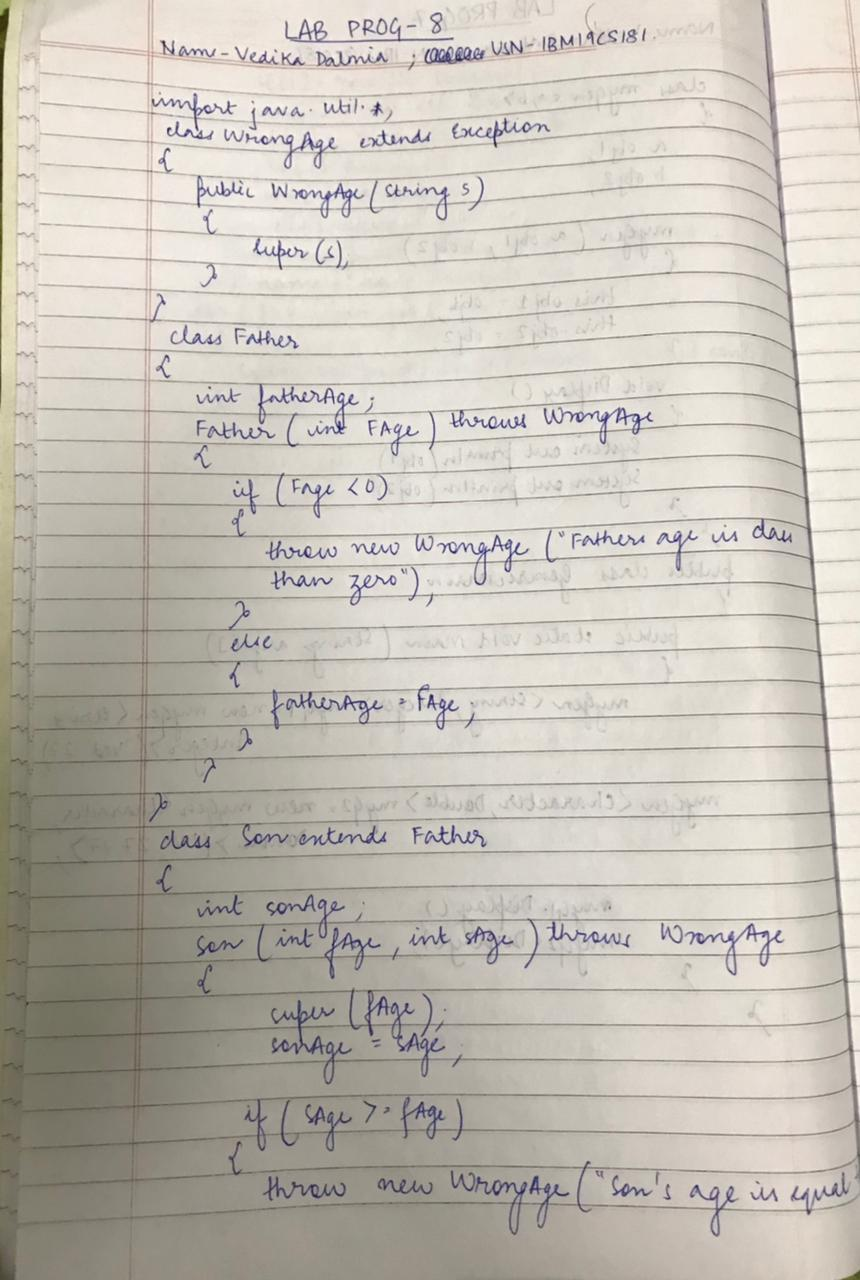 LAB PROG-8
Name-Vedika Dalmia ; USN-1BM19CS181.
import java.util.*;
class WrongAge extends Exception
{
public WrongAge(String s)
{
super(s);
}
}
class Father
{
int fatherAge;
Father (int FAge) throws WrongAge
{
if (FAge <0)
{
throw new WrongAge ("Fathers age is
than zero");
}
else
{
fatherAge = FAge;
}
}
}
class Son extends Father
{
int sonAge;
Son (int fAge, int sAge) throws WrongAge
{
super (fAge);
sonAge = sAge;
if (sAge >= fAge)
{
throw new WrongAge("Son's age is equal